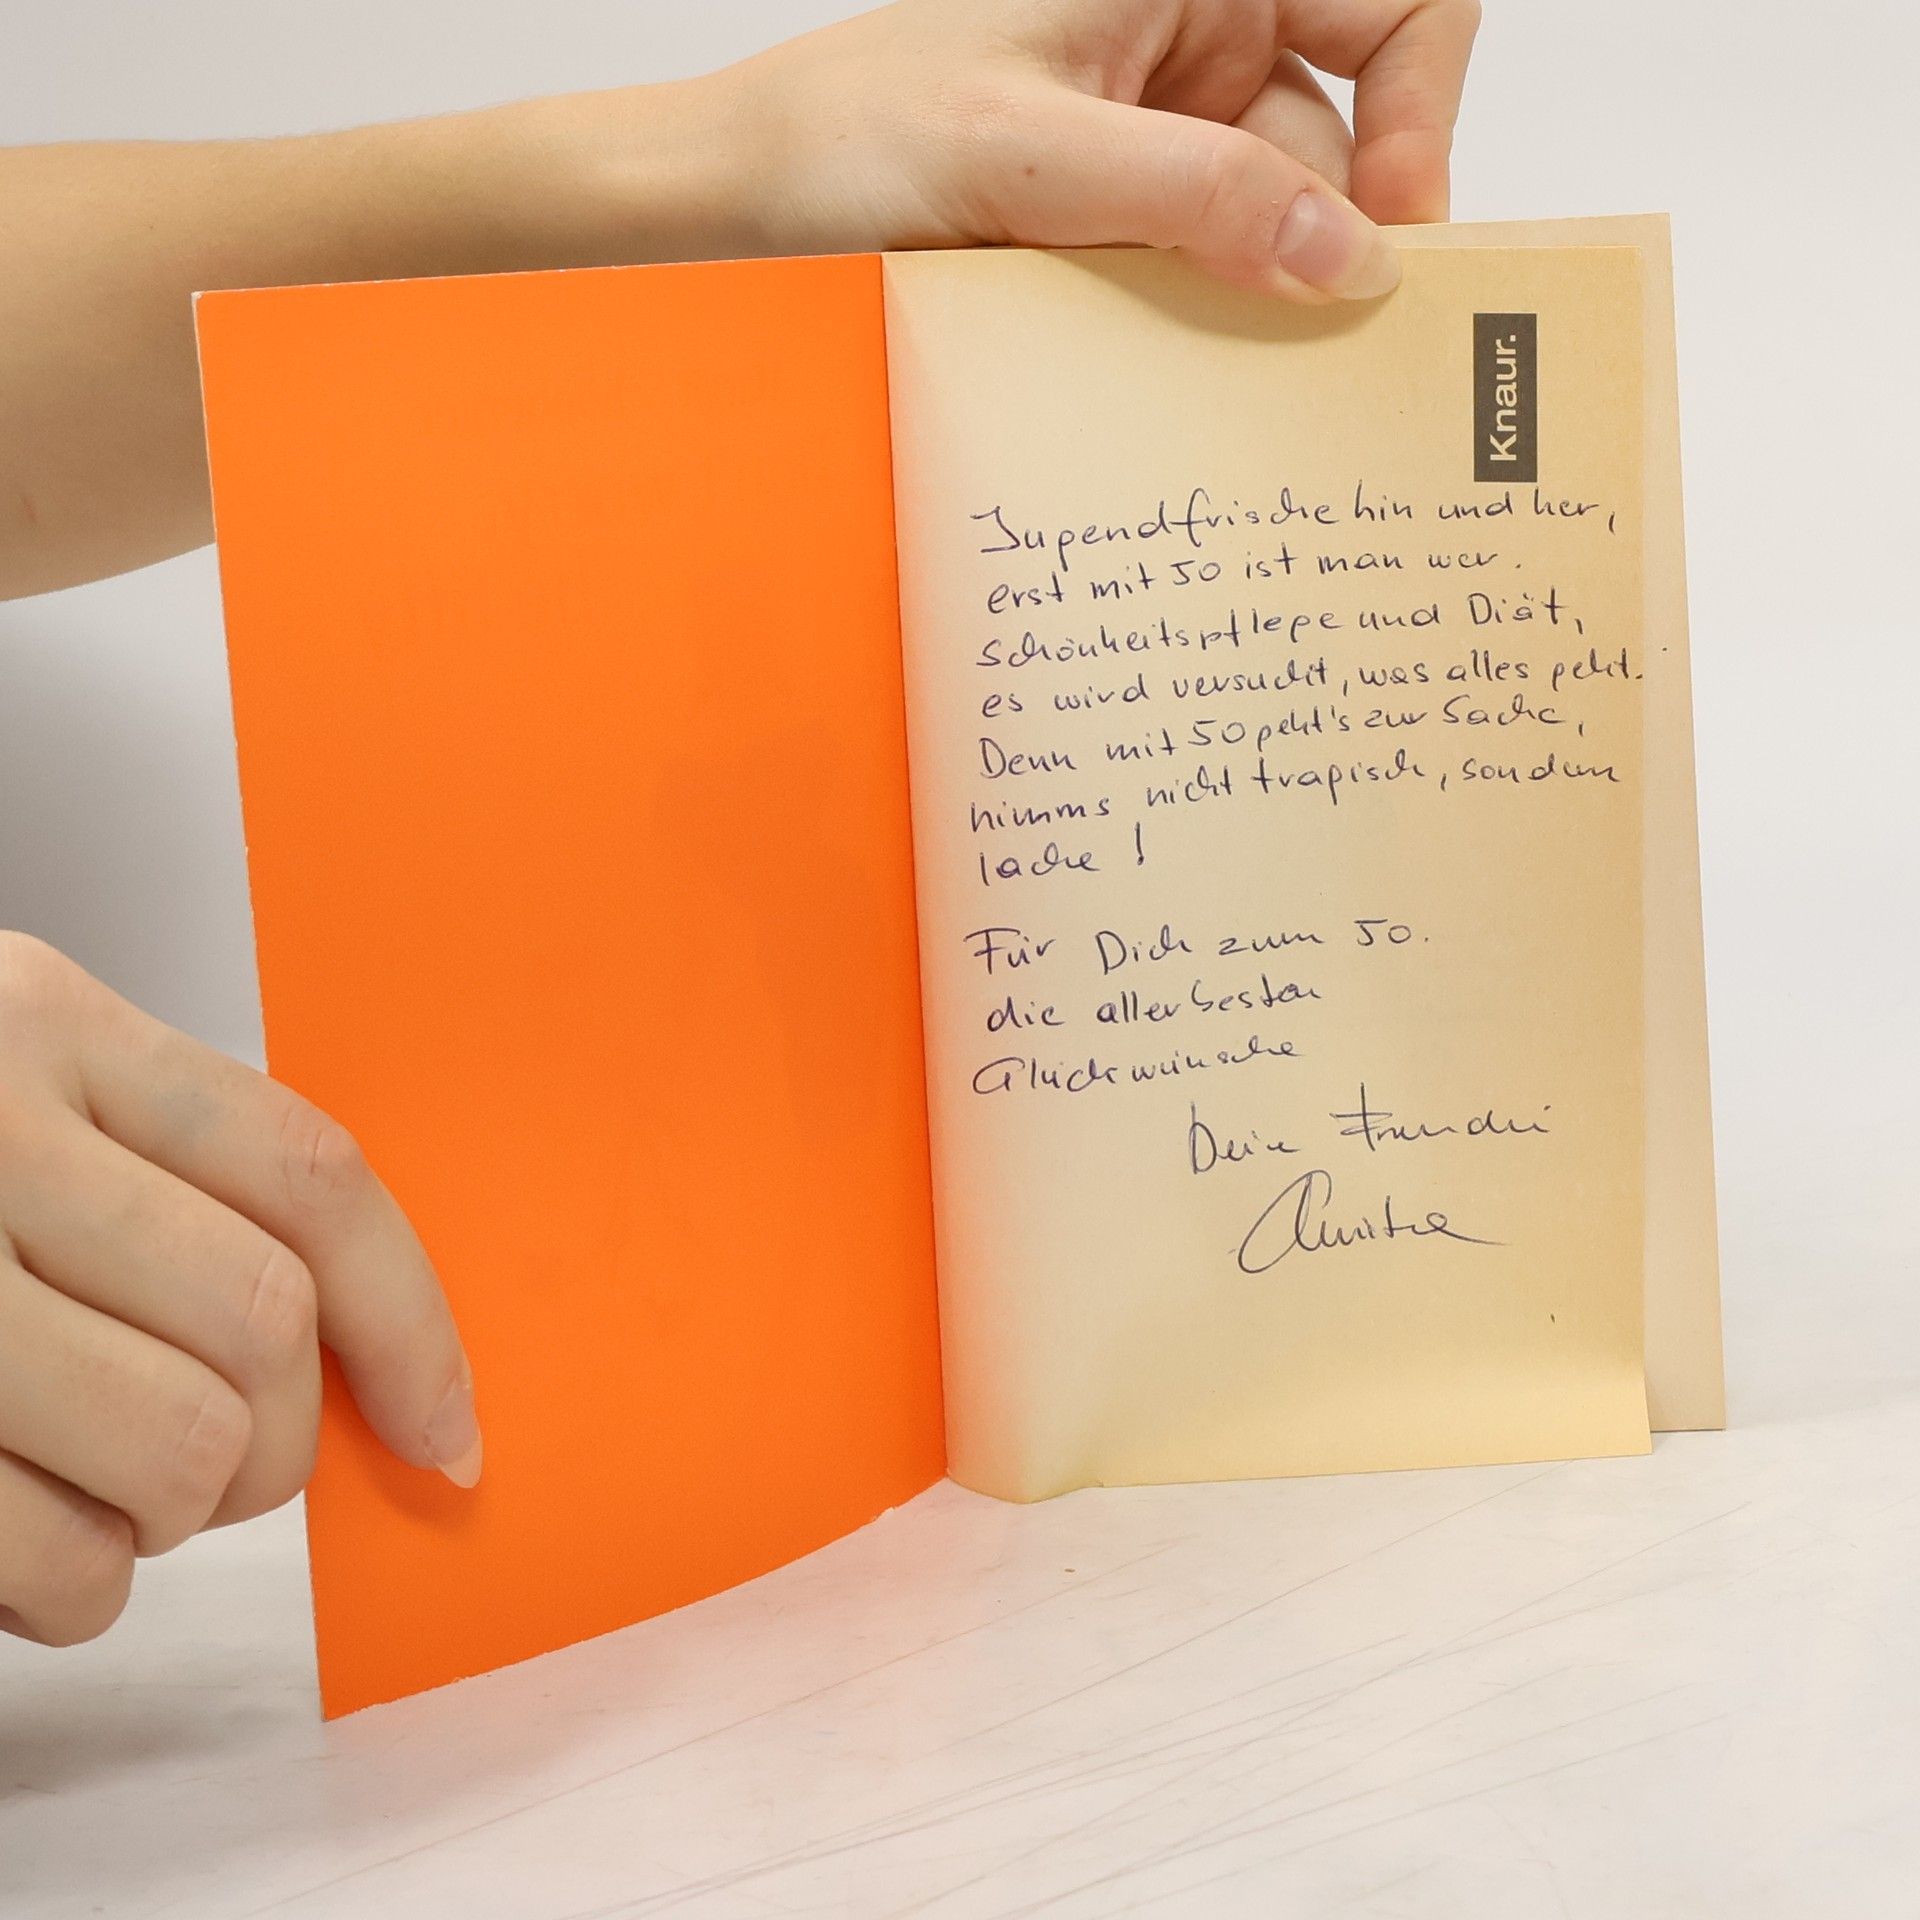 Knaur.
Jugendfrische hin und her,
erst mit 50 ist man wer.
Schönheitspflege und Diät,
es wird versucht, was alles geht.
Denn mit 50 geht's zur Sache,
nimms nicht tragisch, sondern
lache!
Für Dich zum 50.
die allerbesten
Glückwünsche
Deine